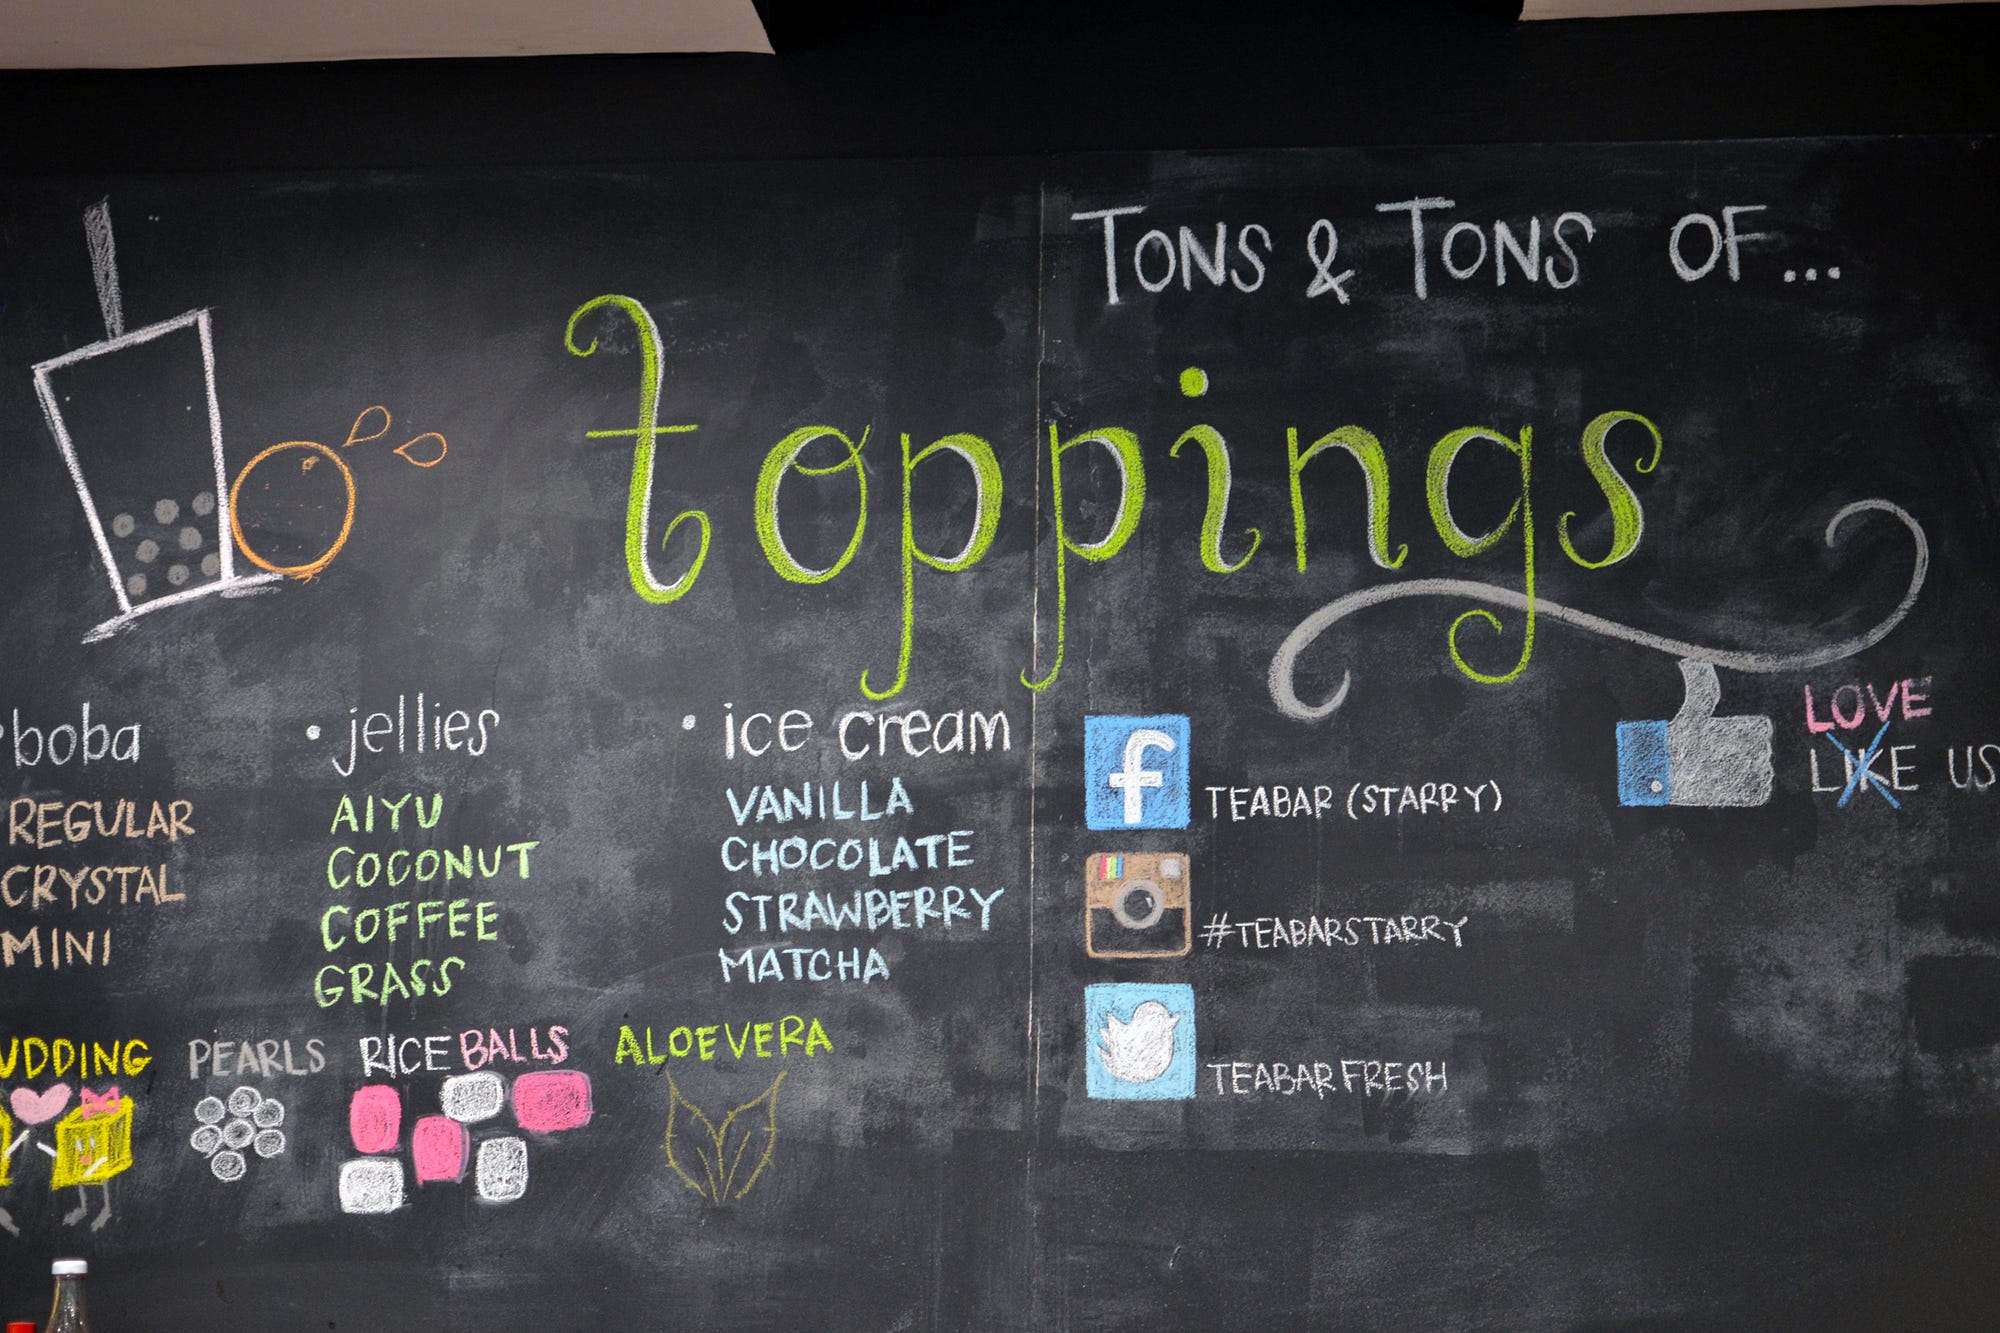 TONS & TONS OF...
toppings
• boba
REGULAR
CRYSTAL
MINI
• jellies
AIYU
COCONUT
COFFEE
GRASS
• ice cream
VANILLA
CHOCOLATE
STRAWBERRY
MATCHA
UDDING
PEARLS
RICE BALLS
ALOE VERA
f
TEABAR (STARRY)
#TEABARSTARRY
TEABARFRESH
LOVE
LIKE US